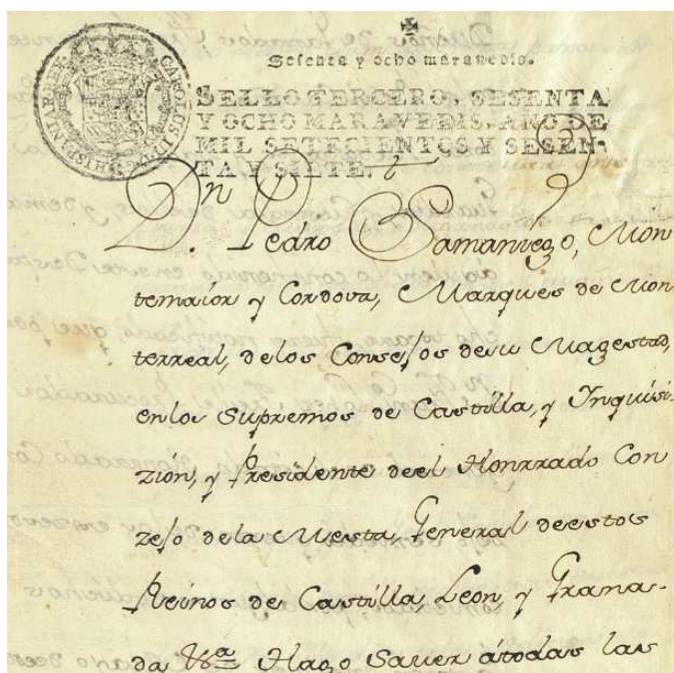 Sesenta y ocho maravedis.
SELLO TERCERO, SESENTA
Y OCHO MARAVEDIS, AÑO DE
MIL SETECIENTOS Y SESEN-
TA Y SIETE.
CAROLUS III D G HISPANIAR REX
Dn. Pedro Samaniego, Mon
temaior y Cordova, Marques de Mon
terreal, delos Consejos desu Magestad,
enlos Supremos de Castilla, y Inquisi-
zión, y Presidente deel Honrrado Con
zejo dela Mesta, General deestos
Reinos de Castilla Leon, y Grana-
da Vª Hago Saver átodas las